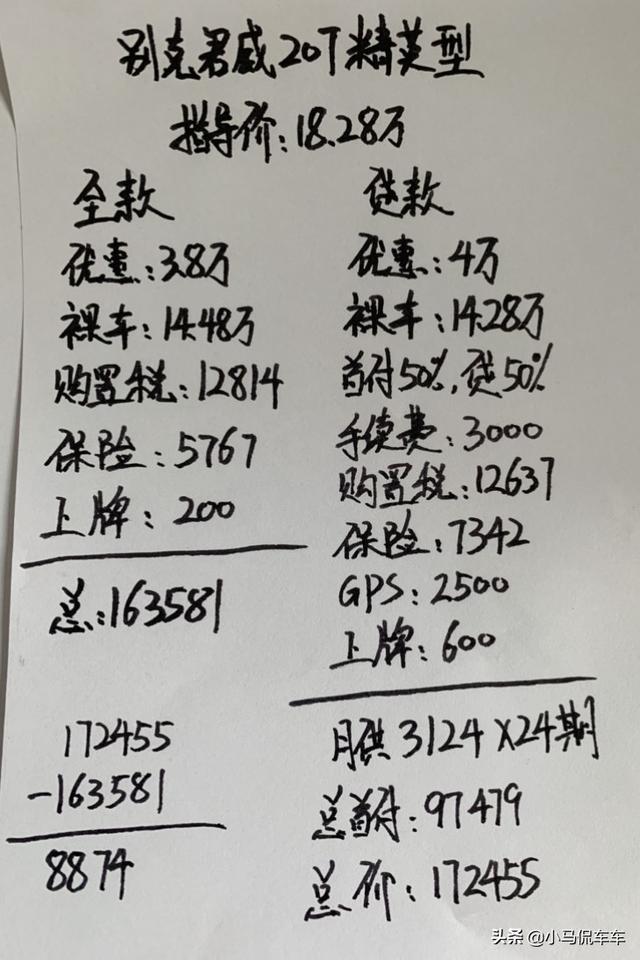 别克君威20T精英型
指导价:18.28万
全款
优惠:3.8万
裸车:14.48万
购置税:12814
保险:5767
上牌:200
总:163581
172455
-163581
8874
贷款
优惠:4万
裸车:14.28万
首付50%,贷50%
手续费:3000
购置税:12637
保险:7342
GPS:2500
上牌:600
月供3124X24期
总首付:97479
总价:172455
头条@小马侃车车